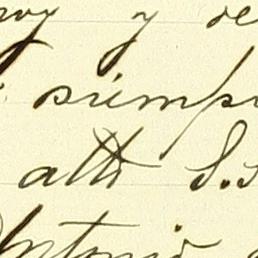 y de
siemp
atto S.S
Antonio